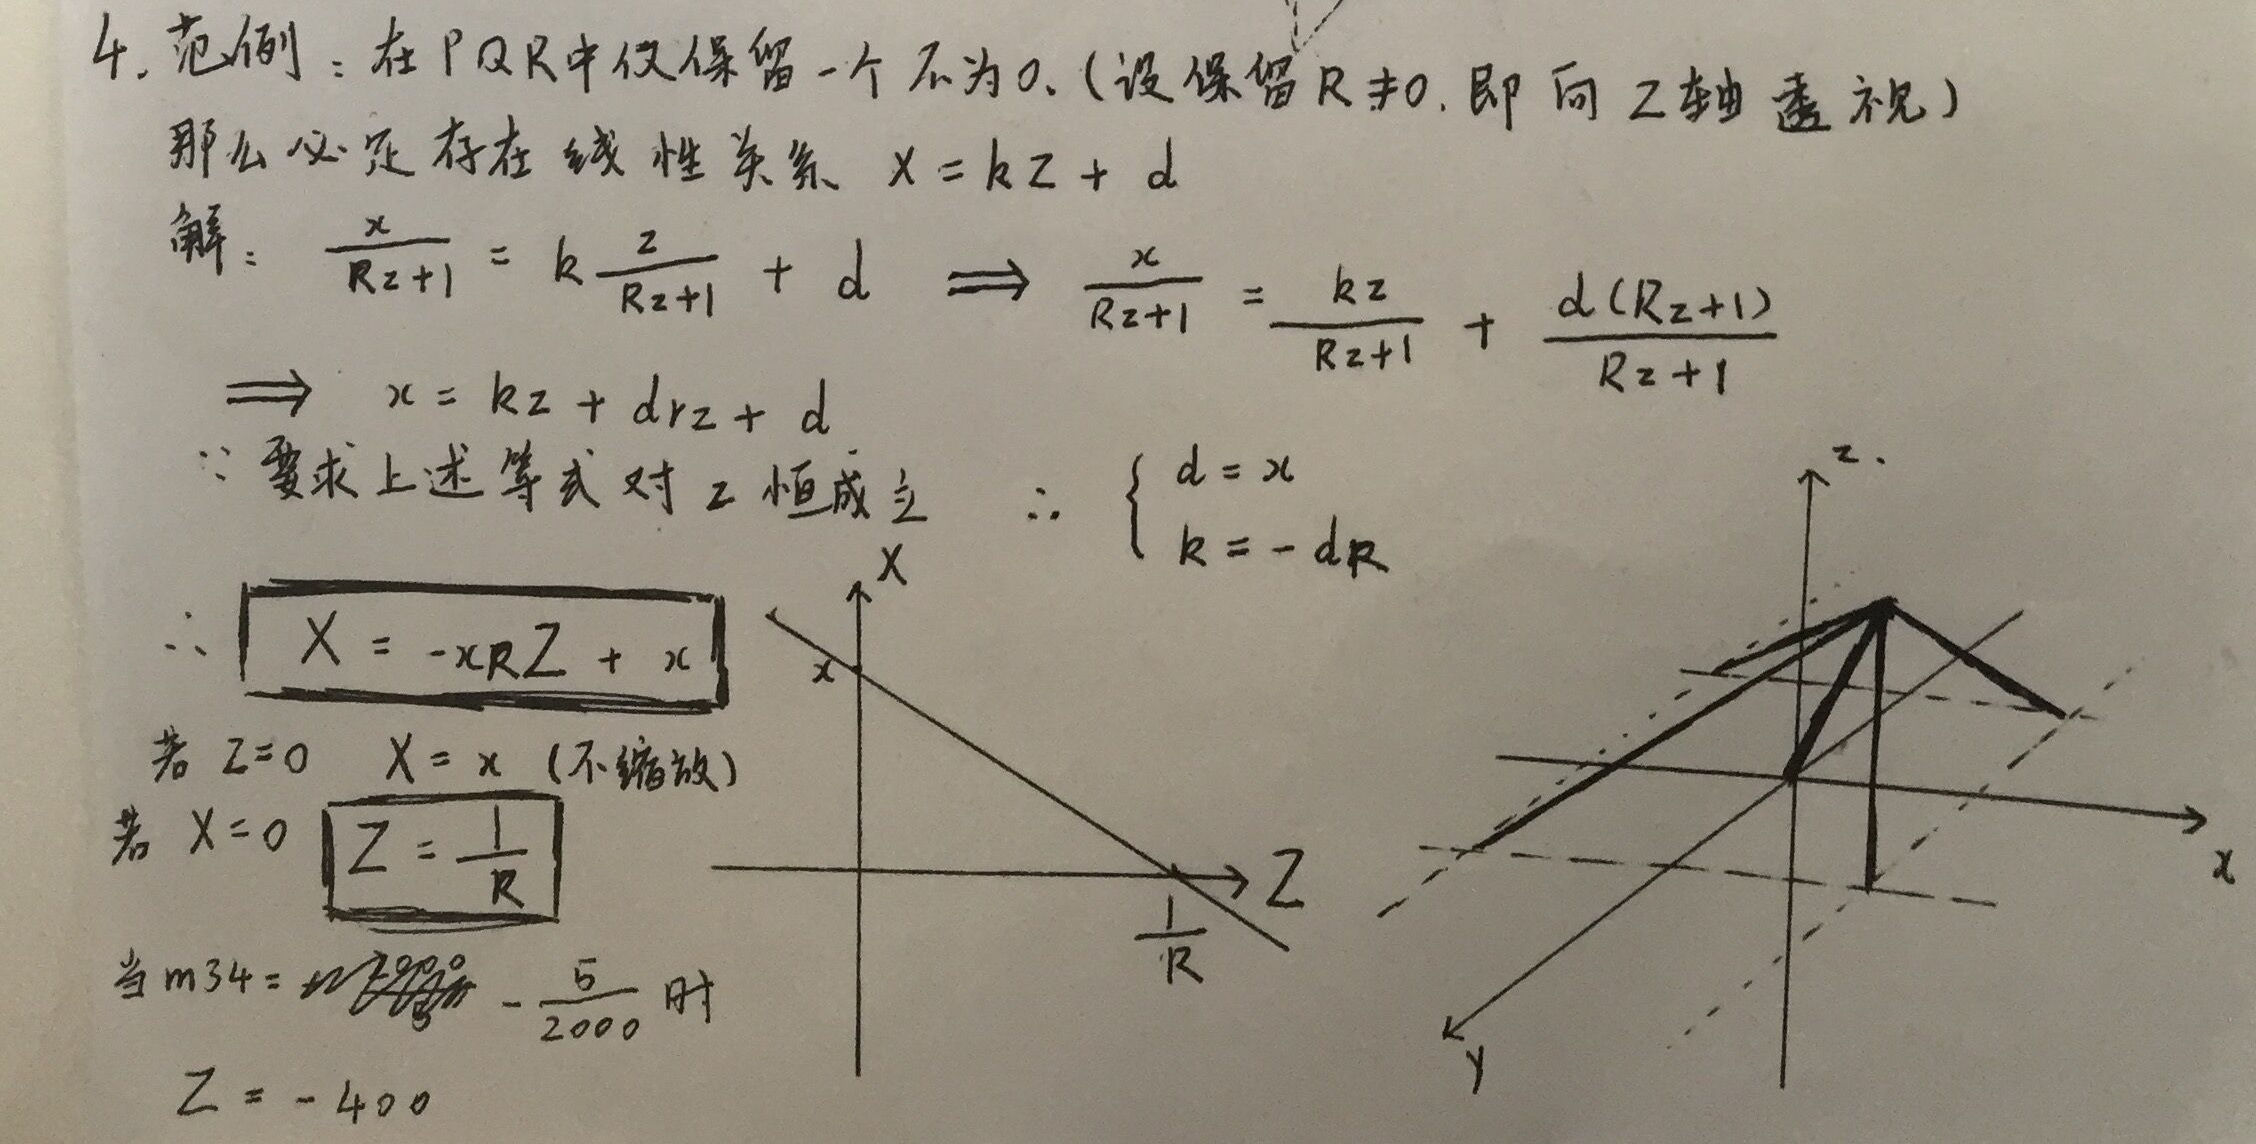 4. 范例：在PQR中仅保留一个不为0.(设保留R≠0.即向Z轴透视)
那么必定存在线性关系 X = kZ + d
解： x/(Rz+1) = k z/(Rz+1) + d ⟹ x/(Rz+1) = kz/(Rz+1) + d(Rz+1)/(Rz+1)
⟹ x = kz + drz + d
∵ 要求上述等式对z恒成立 ∴ { d = x
k = - dR
∴ X = -xRZ + x
若 Z=0 X = x (不缩放)
若 X=0 Z = 1/R
当m34= - 5/2000 时
Z = - 400
X
x
Z
1/R
z.
x
y